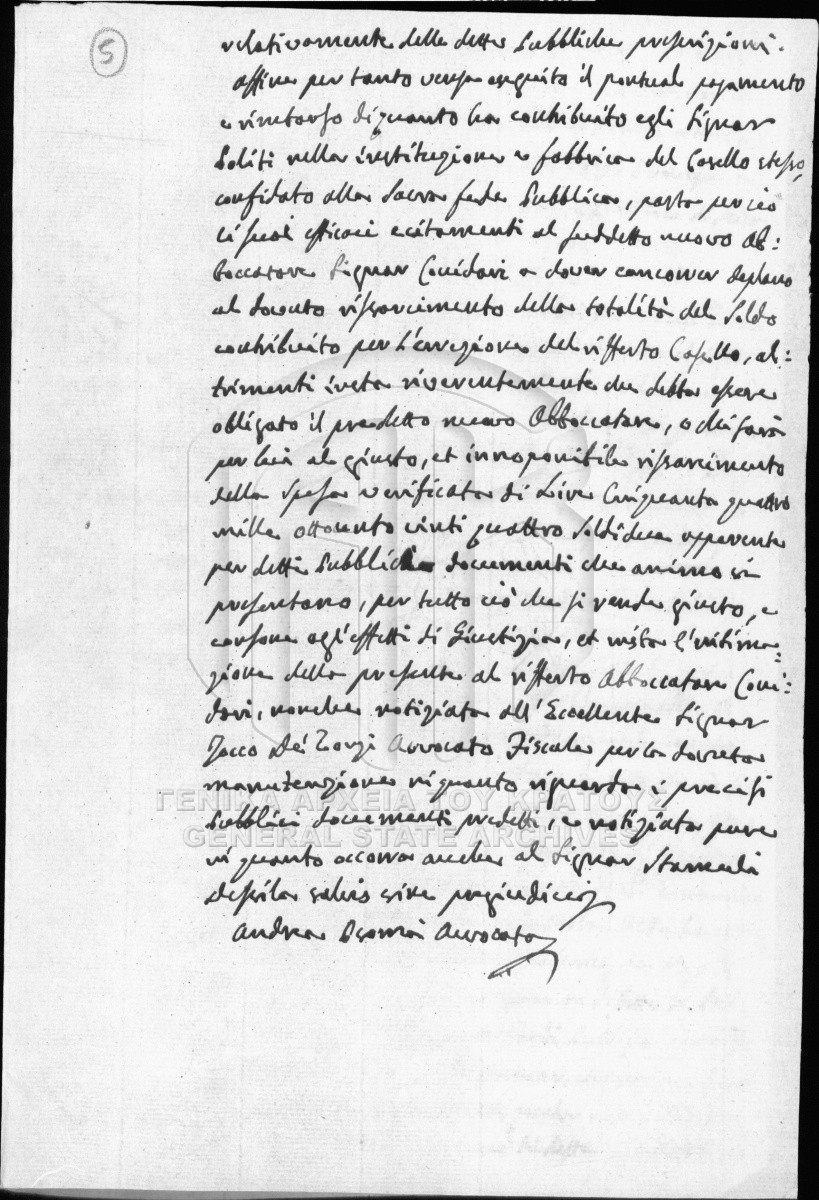 5
relativamente delle dette Pubbliche prescrizioni.
Affine per tanto venga eseguito il pontual pagamento
e rimborso di quanto ha contribuito egli Signor
Politi nella instituzione e fabbrica del Casello stesso,
confidato alla Sacra fede Pubblica, porta perciò
li suoi efficaci eccitamenti al suddetto nuovo Ab:
boccatore Signor Conidari a dover concorrer deplano
al dovuto rissarcimento della totalità del Soldo
contribuito per l'errezione del rifferto Casello, al:
trimenti insta riverentemente che debba essere
obligato il predetto nuovo Abboccatore, o chi sarà
per lui al giusto, et innoponibile rissarcimento
della spesa verificata di Lire Cinquanta quattro
mille ottocento vinti quattro Soldi due apparente
per detti Pubblici documenti che annino si
presentano, per tutto ciò che si rende giusto, e
consone agl'effetti di Giustizia, et insta l'intima:
zione della presente al rifferto Abboccatore Coni:
dari, nonche notiziata all'Eccellente Signor
Zocco De' Zorzi Avvocato Fiscale per la dovuta
manutenzione in quanto riguarda i precisi
Pubblici documenti predetti, e notiziata pure
in quanto occorra anche al Signor Stamuli
salvis sine pregiudicio
Andrea Avvocato
ΓΕΝΙΚΑ ΑΡΧΕΙΑ ΤΟΥ ΚΡΑΤΟΥΣ
GENERAL STATE ARCHIVES